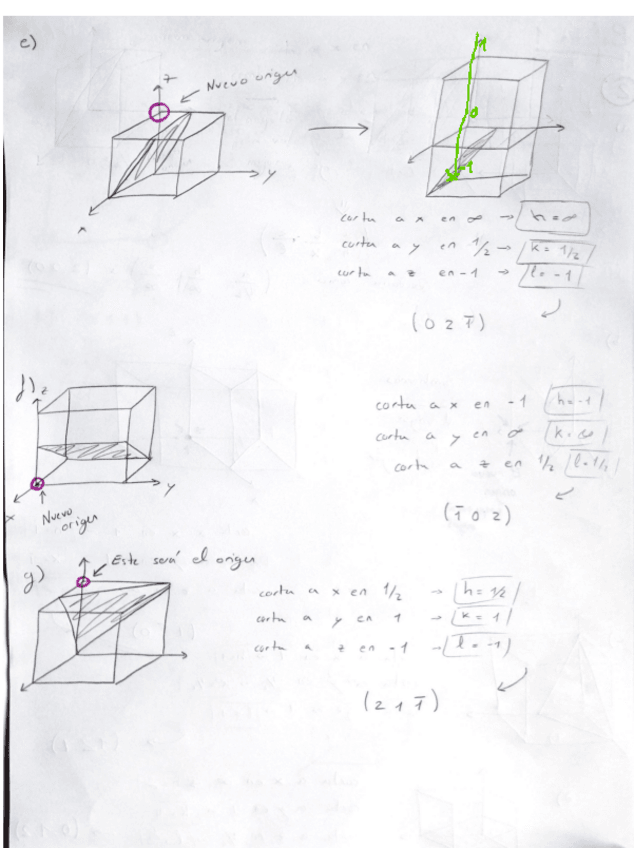 e)
z
Nuevo origen
y
x
1
0
-1
corta a x en ∞ → h = ∞
corta a y en 1/2 → k = 1/2
corta a z en -1 → l = -1
(0 2 1̅)
f)
z
y
x
Nuevo
origen
corta a x en -1 h = -1
corta a y en ∞ k = ∞
corta a z en 1/2 l = 1/2
(1̅ 0 2)
g)
Este será el origen
corta a x en 1/2 → h = 1/2
corta a y en 1 → k = 1
corta a z en -1 → l = -1
(2 1 1̅)